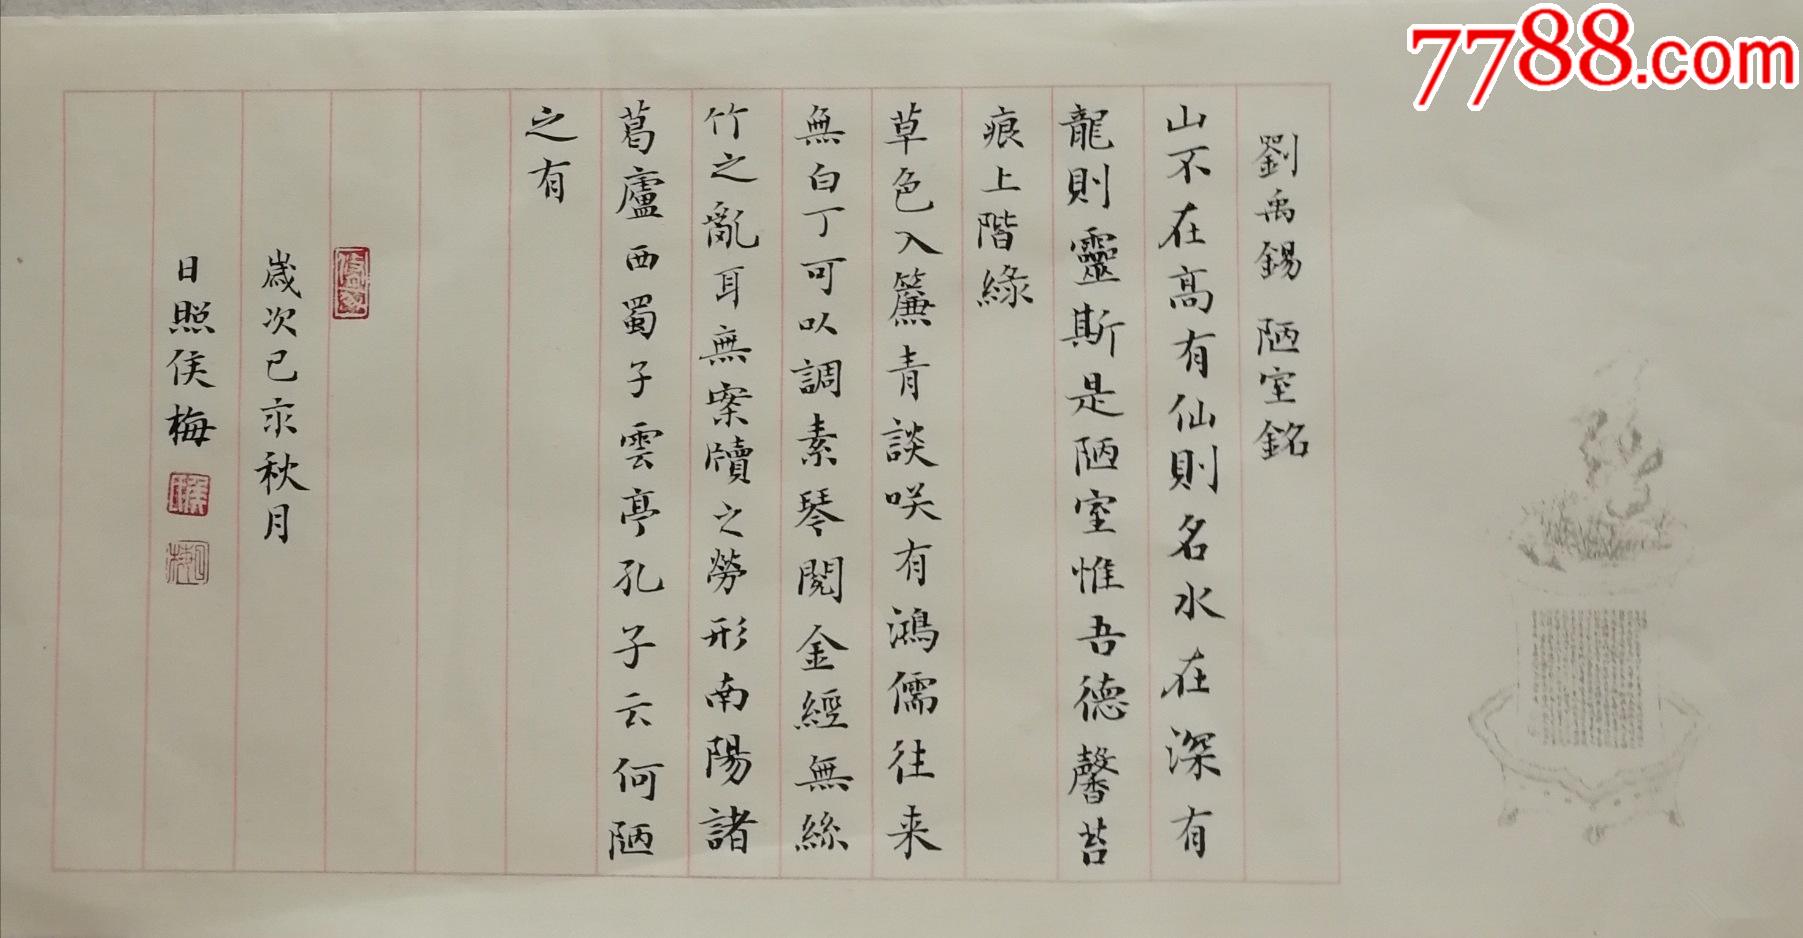 劉禹錫 陋室銘
山不在高有仙則名水在深有
龍則靈斯是陋室惟吾德馨苔
痕上階綠
草色入簾青談咲有鴻儒往来
無白丁可以調素琴閱金經無絲
竹之亂耳無案牘之勞形南陽諸
葛廬西蜀子雲亭孔子云何陋
之有
歲次己亥秋月
日照侯梅
7788.com